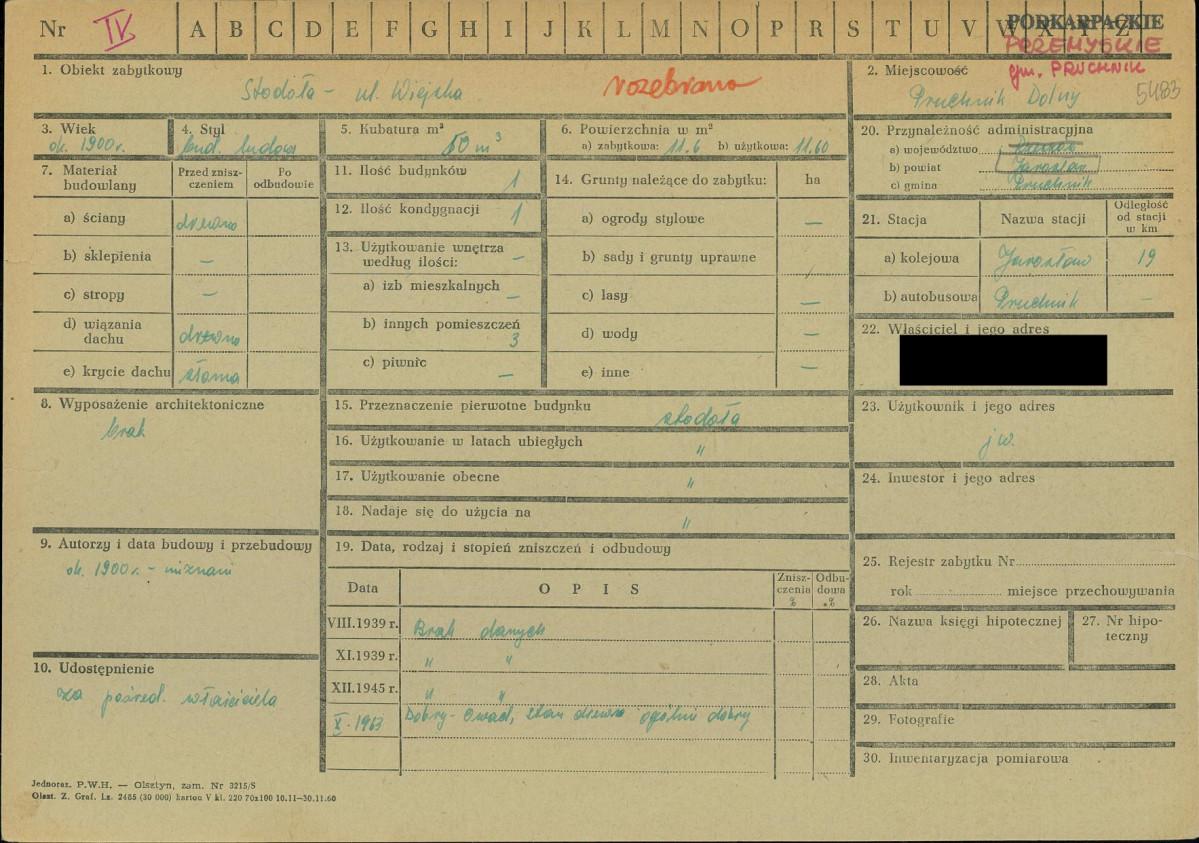 Nr IV A B C D E F G H I J K L M N O P R S T U V W X Y Z
PODKARPACKIE
PRZEMYSKIE
gm. PRUCHNIK
5483
1. Obiekt zabytkowy
Stodoła - ul. Wiejska
rozebrana
2. Miejscowość
Pruchnik Dolny
3. Wiek
ok. 1900 r.
4. Styl
bud. ludowe
5. Kubatura m³
50 m³
6. Powierzchnia w m²
a) zabytkowa: 11.6 b) użytkowa: 11.60
7. Materiał budowlany
Przed znisz-
czeniem
Po
odbudowie
a) ściany drewno
b) sklepienia —
c) stropy —
d) wiązania
dachu drewno
e) krycie dachu słoma
8. Wyposażenie architektoniczne
brak
9. Autorzy i data budowy i przebudowy
ok. 1900 r. - nieznani
10. Udostępnienie
za pośred. właściciela
11. Ilość budynków 1
12. Ilość kondygnacji 1
13. Użytkowanie wnętrza
według ilości: —
a) izb mieszkalnych —
b) innych pomieszczeń
3
c) piwnic —
14. Grunty należące do zabytku: ha
a) ogrody stylowe —
b) sady i grunty uprawne
c) lasy —
d) wody —
e) inne —
15. Przeznaczenie pierwotne budynku stodoła
16. Użytkowanie w latach ubiegłych "
17. Użytkowanie obecne "
18. Nadaje się do użycia na "
19. Data, rodzaj i stopień zniszczeń i odbudowy
Data OPIS Znisz-
czenia
% Odbu-
dowa
%
VIII.1939 r. Brak danych
XI.1939 r. " "
XII.1945 r. " "
X - 1963 Dobry - owad, stan drewna ogólnie dobry
20. Przynależność administracyjna
a) województwo
b) powiat Jarosław
c) gmina Pruchnik
21. Stacja Nazwa stacji Odległość
od stacji
w km
a) kolejowa Jarosław 19
b) autobusowa Pruchnik —
22. Właściciel i jego adres
23. Użytkownik i jego adres
jw.
24. Inwestor i jego adres
25. Rejestr zabytku Nr
rok miejsce przechowywania
26. Nazwa księgi hipotecznej
27. Nr hipo-
teczny
28. Akta
29. Fotografie
30. Inwentaryzacja pomiarowa
Jednoraz. P.W.H. — Olsztyn, zam. Nr 3215/S
Olszt. Z. Graf. Lz. 2485 (30 000) karton V kl. 220 70x100 10.11—30.11.60